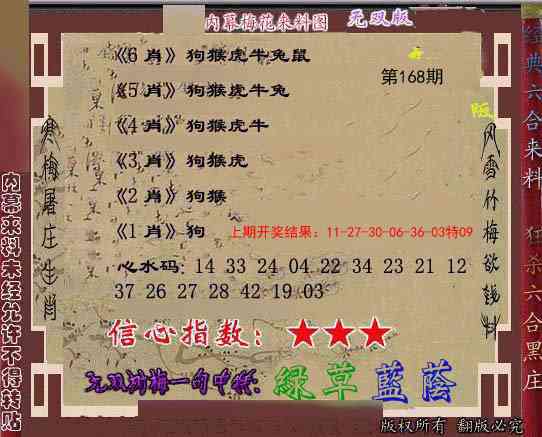 内幕梅花来料图 无双版
《6 肖》狗猴虎牛兔鼠
第168期
《5 肖》狗猴虎牛兔
《4 肖》狗猴虎牛
《3 肖》狗猴虎
《2 肖》狗猴
《1 肖》狗
上期开奖结果：11-27-30-06-36-03特09
心水码: 14 33 24 04 22 34 23 21 12
37 26 27 28 42 19 03
信心指数：★★★
无双鸿梅一句中特:绿草蓝荫
版权所有 翻版必究
寒梅屠庄生肖
风雪竹梅欲钱料
内幕来料未经允许不得转贴
经典六合来料 狂杀六合黑庄